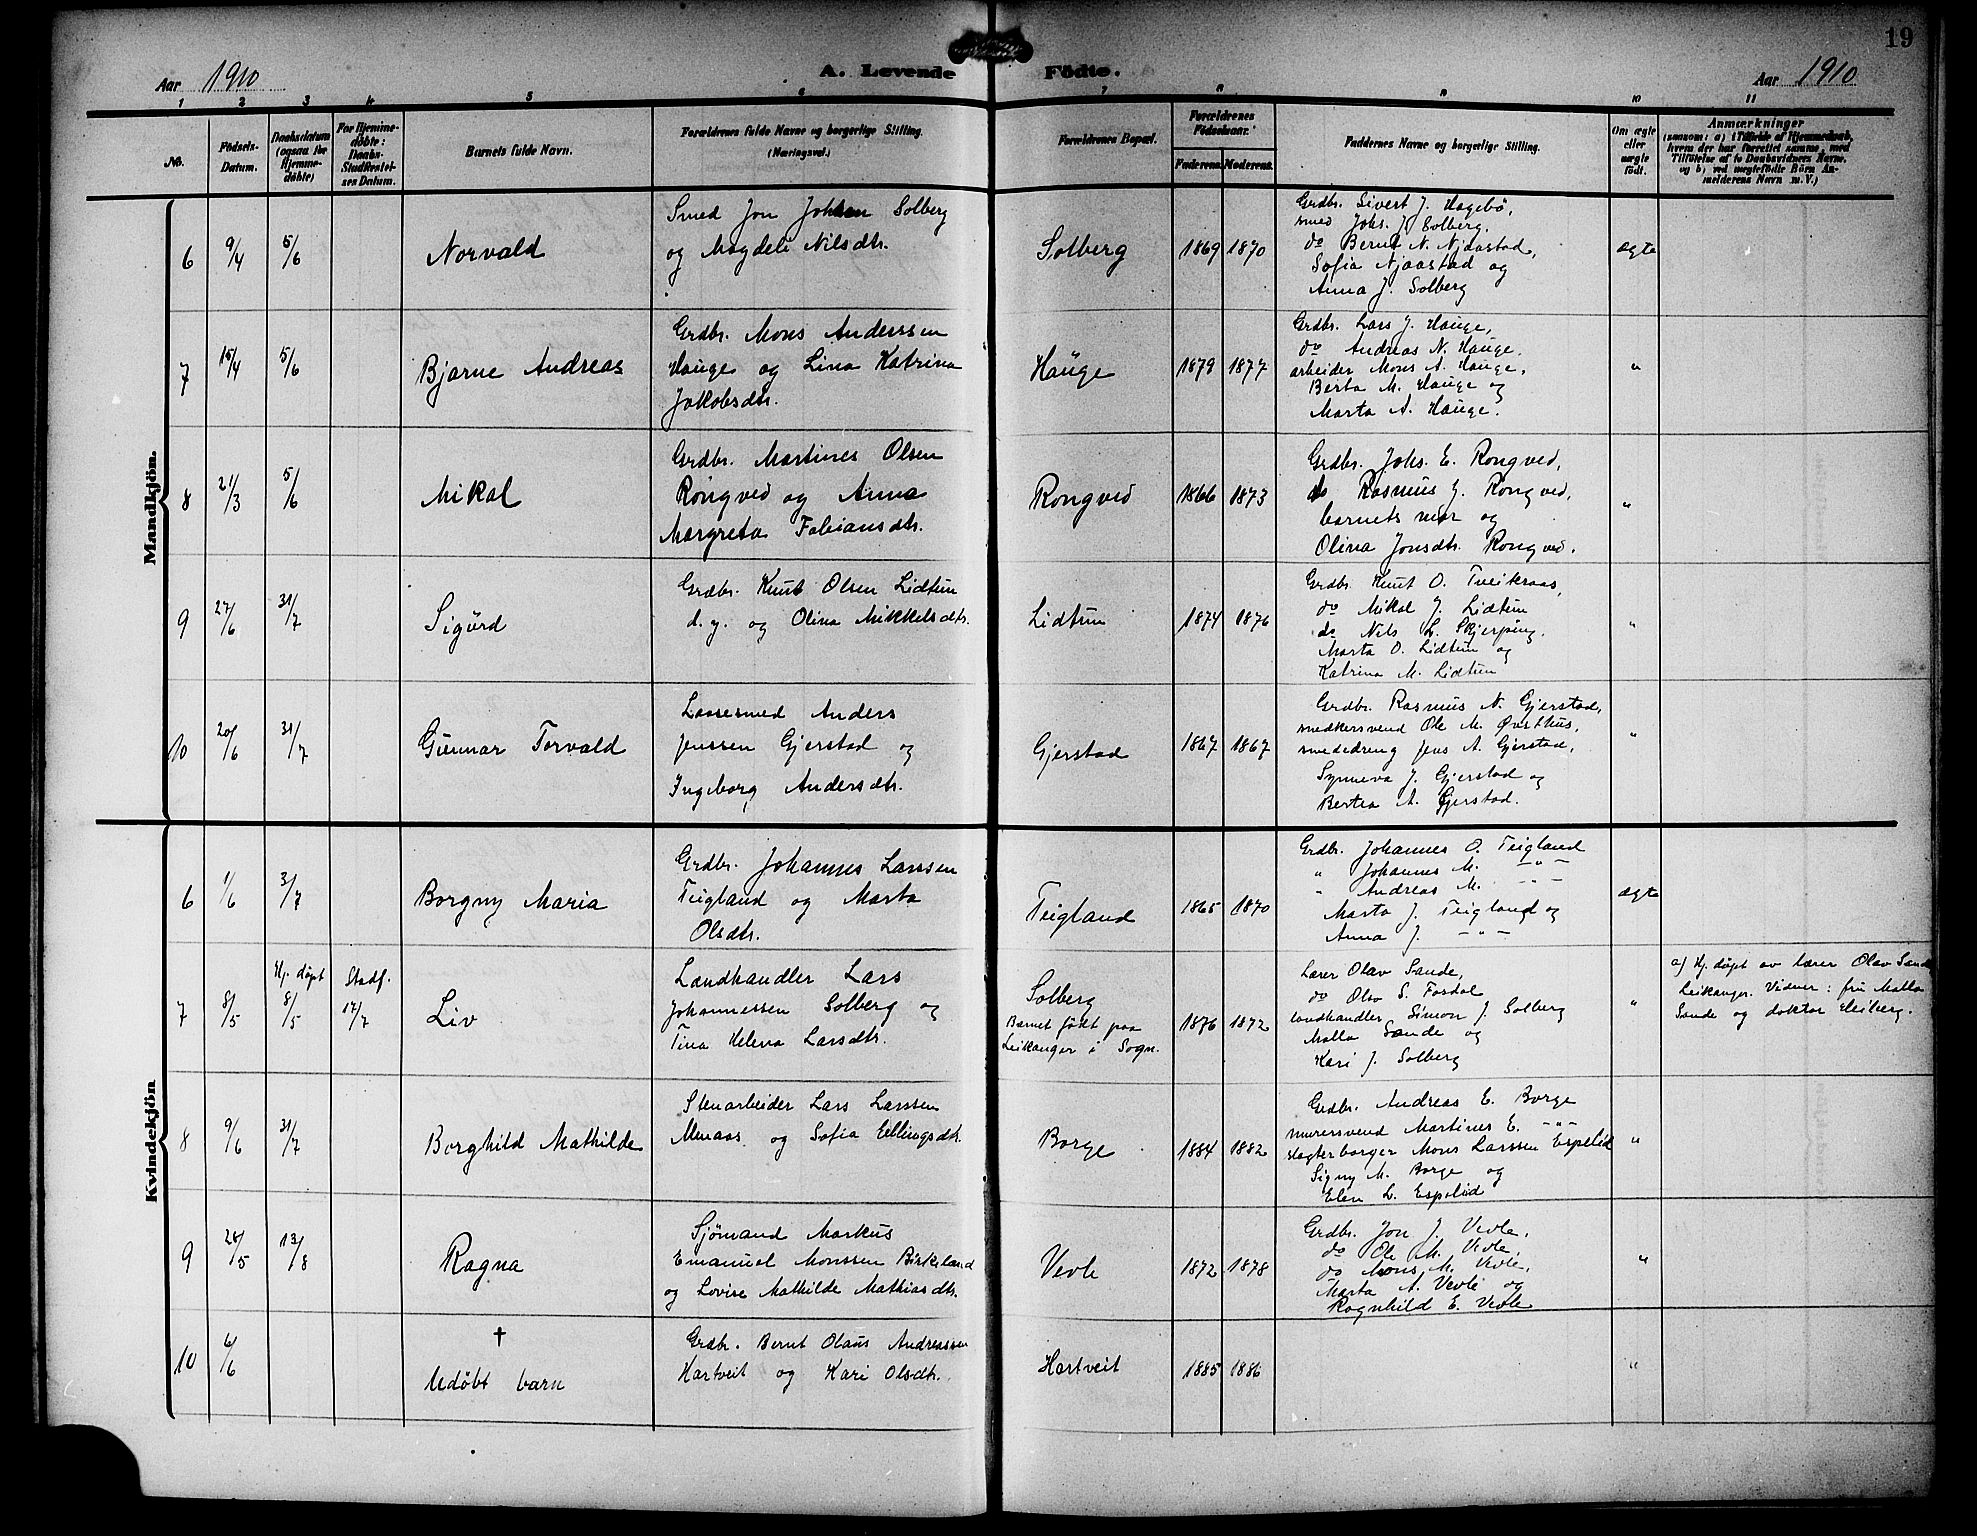 19
Aar 1910
A. Levende Födte.
Aar 1910
1 2 3 4 5 6 7 8 9 10 11
No.
Födsels-
Datum.
Daabsdatum
(ogsaa for
Hjemme-
döbte)
For Hjemme-
döbte:
Daabs-
Stadfæstel-
ses Datum.
Barnets fulde Navn.
Forældrenes fulde Navne og borgerlige Stilling.
(Næringsvei.)
Forældrenes Bopæl.
Forældrenes
Födselsaar.
Faderens. Moderens.
Faddernes Navne og borgerlige Stilling.
Om ægte
eller
uægte
födt.
Anmærkninger
(saasom: a) i Tilfælde af Hjemmedaab,
hvem der har forrettet samme, med
Tilföielse af to Daabsvidners Navne,
og b) ved uægtefödte Börn An-
melderens Navn m. V.)
Mandkjön.
6 9/4 5/6 Norvald
Smed Jon Johsen Solberg
og Magdeli Nilsdtr.
Solberg 1869 1870
Grdbr. Sivert J. Hagebö,
smed Johs. J. Solberg,
do Bernt N. Njaastad,
Sofia Njaastad og
Anna J. Solberg
ægte
7 15/4 5/6 Bjarne Andreas
Grdbr. Mons Anderssen
Hauge og Lina Katrina
Jakobsdtr.
Hauge 1879 1877
Grdbr. Lars J. Hauge,
do Andreas N. Hauge,
arbeider Mons A. Hauge,
Berta M. Hauge og
Marta A. Hauge.
"
8 21/3 5/6 Mikal
Grdbr. Martines Olsen
Rongved og Anna
Margreta Fabiansdtr.
Rongved 1866 1873
Grdbr. Johs. E. Rongved,
do Rasmus J. Rongved,
barnets mor og
Olina Jonsdtr. Rongved.
"
9 27/6 31/7 Sigurd
Grdbr. Knut Olsen Lidtun
d. y. og Olina Mikkelsdtr.
Lidtun 1874 1876
Grdbr. Knut O. Tveikraas,
do Mikal J. Lidtun
do Nils L. Skjerping,
Marta O. Lidtun og
Katrina M. Lidtun
"
10 20/6 31/7 Gunnar Torvald
Laasesmed Anders
Jenssen Gjerstad og
Ingeborg Andersdtr.
Gjerstad 1867 1867
Grdbr. Rasmus N. Gjerstad,
smedkersvend Ole M. Øvsthus,
smededreng Jens A. Gjerstad,
Synneva J. Gjerstad og
Bertea A. Gjerstad.
"
Kvindekjön
6 1/6 3/7 Borgny Maria
Grdbr. Johannes Larssen
Teigland og Marta
Olsdtr.
Teigland 1865 1870
Grdbr. Johannes O. Teigland
" Johannes M. - " -
" Andreas M. - " -
Marta J. Teigland og
Anna J. - " -
ægte
7 8/5 Hj. døpt 8/5 Stadf. 17/7 Liv
Landhandler Lars
Johannessen Solberg og
Tina Helena Larsdtr.
Solberg
Barnet født paa
Leikanger i Sogn.
1876 1872
Lærer Olav Sande,
do Olav S. Fosdal
landhandler Simon J. Solberg
Malla Sande og
Kari J. Solberg
"
a) Hj. døpt av lærer Olav Sande
Leikanger. Vidner: fru Malla
Sande og doktor Heiberg.
8 9/6 31/7 Borghild Mathilde
Stenarbeider Lars Larssen
Menaas og Sofia Ellingsdtr.
Borge 1884 1882
Grdbr. Andreas E. Borge
murersvend Martines E. - " -
slagterborger Mons Larssen Espelid
Signy M. Borge og
Elen L. Espelid
"
9 26/5 13/8 Ragna
Sjömand Markus
Emanuel Monssen Birkeland
og Lovise Mathilde Mathiasdtr.
Vevle 1872 1878
Grdbr. Jon J. Vevle,
do Ole M. Vevle,
do Mons M. Vevle,
Marta A. Vevle og
Ragnhild E. Vevle
"
10 6/6 †
Udöbt barn
Grdbr. Bernt Olaus Andreassen
Hartveit og Kari Olsdtr.
Hartveit 1885 1886
"